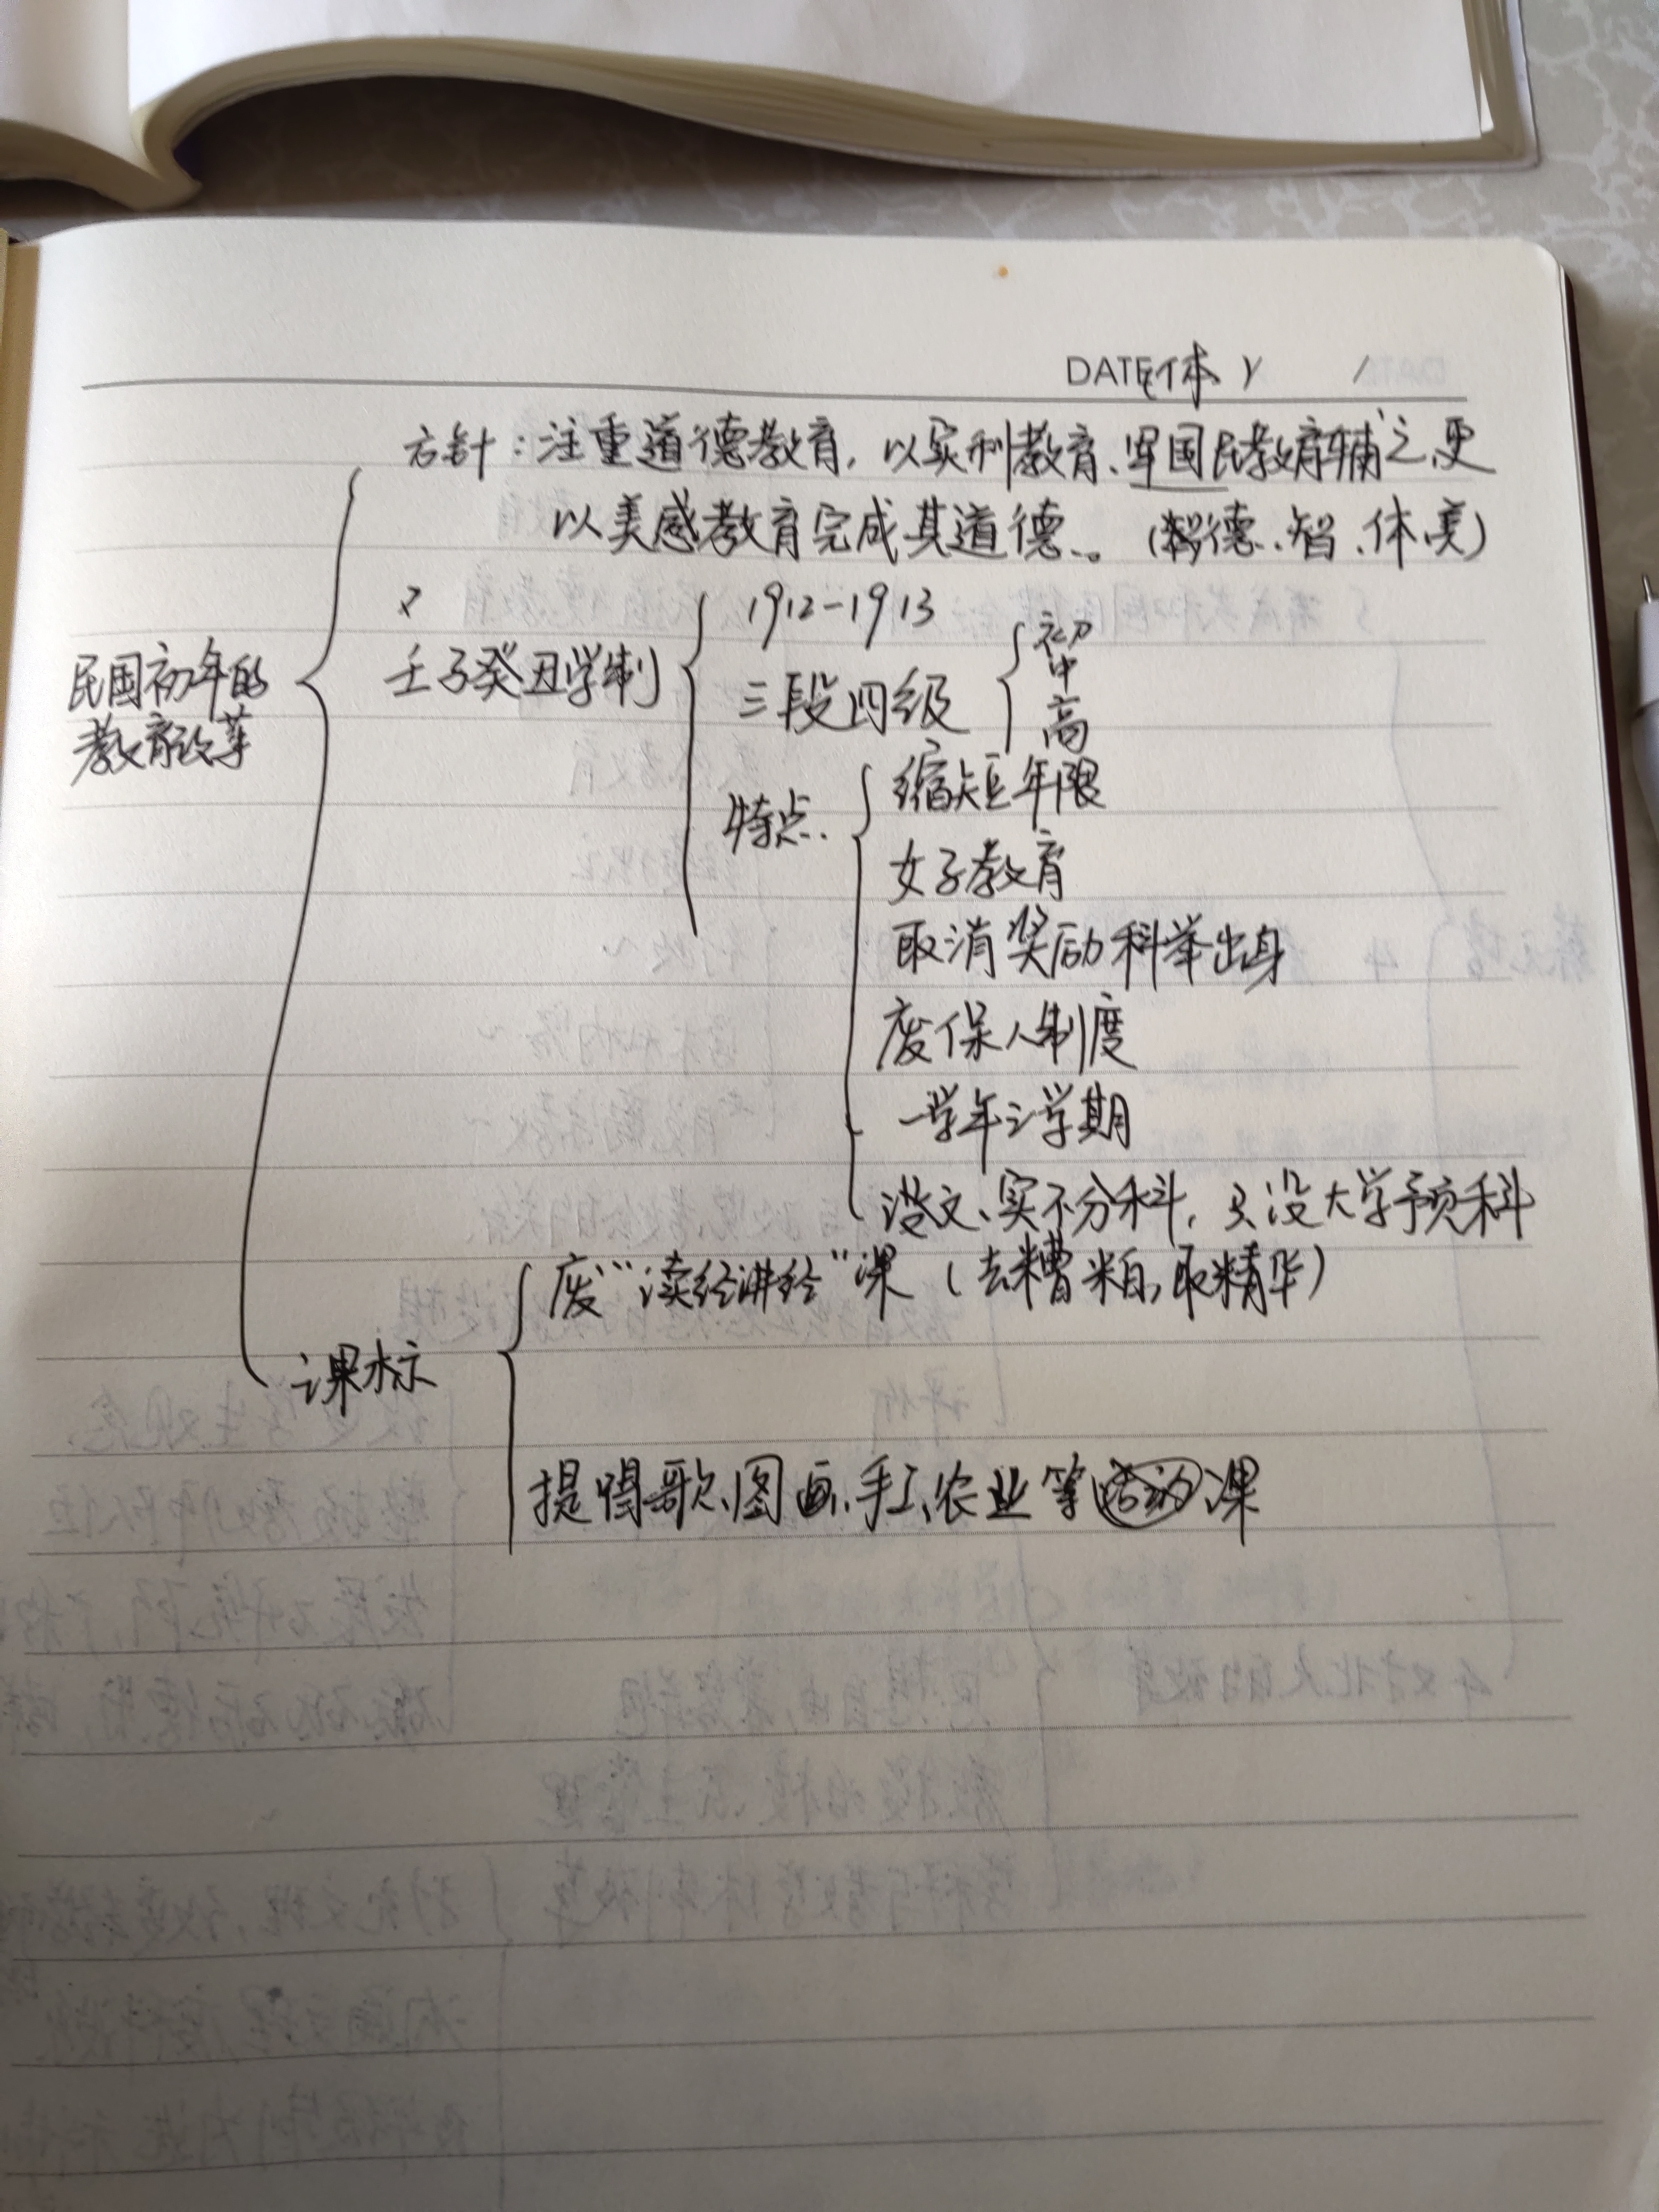 DATE
(体)
方针：注重道德教育，以实利教育、军国民教育辅之，更
以美感教育完成其道德。（德、智、体、美）
民国初年的
教育改革
壬子癸丑学制
1912-1913
三段四级
初
中
高
特点
缩短年限
女子教育
取消奖励科举出身
废保人制度
一学年三学期
文、实不分科，只设大学预科
课标
废“读经讲经”课（去糟粕，取精华）
提唱歌、图画、手工、农业等活动课